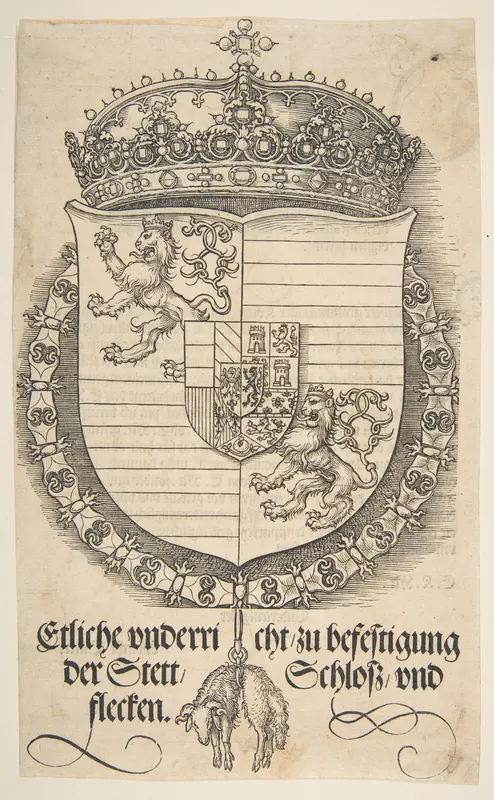 Etliche vnderri cht/zu befestigung
der Stett/ Schloß/ vnd
flecken.